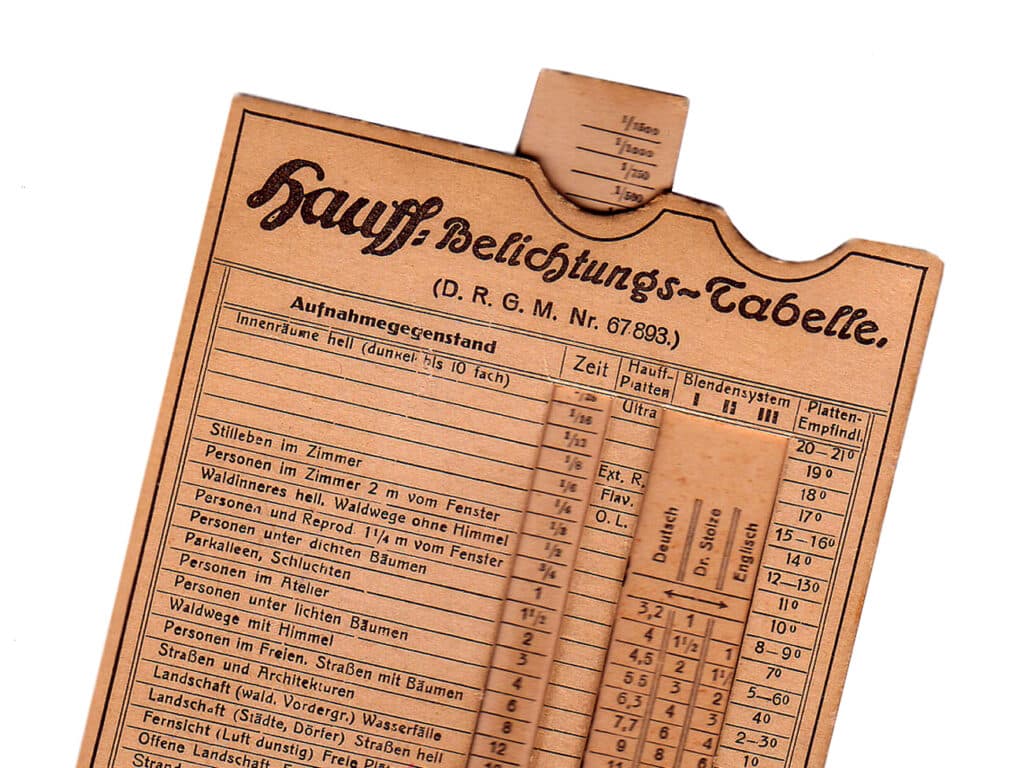 1/1500
1/1000
1/750
1/500
Hauff-Belichtungs-Tabelle.
(D. R. G. M. Nr. 67893.)
Aufnahmegegenstand
Zeit
Hauff-
Platten
Blendensystem
I II III
Platten-
Empfindl.
Innenräume hell (dunkel bis 10 fach)
Stilleben im Zimmer
Personen im Zimmer 2 m vom Fenster
Waldinneres hell, Waldwege ohne Himmel
Personen und Reprod. 1 1/4 m vom Fenster
Personen unter dichten Bäumen
Parkalleen, Schluchten
Personen im Atelier
Personen unter lichten Bäumen
Waldwege mit Himmel
Personen im Freien, Straßen mit Bäumen
Straßen und Architekturen
Landschaft (wald. Vordergr.) Wasserfälle
Landschaft (Städte, Dörfer) Straßen hell
Fernsicht (Luft dunstig) Freie
Offene Landschaft
1/16
1/12
1/8
1/6
1/4
1/3
1/2
3/4
1
1 1/2
2
3
4
6
8
12
Ultra
Ext. R.
Flav.
O. L.
Deutsch
Dr. Stolze
Englisch
3,2 1
4 1 1/2 1
4,5 2 1 1/2
5,5 3 2
6,3 4 3
7,7 6 4
9 8 6
11
20—21°
19°
18°
17°
15—16°
14°
12—13°
11°
10°
8—9°
7°
5—6°
4°
2—3°
1°